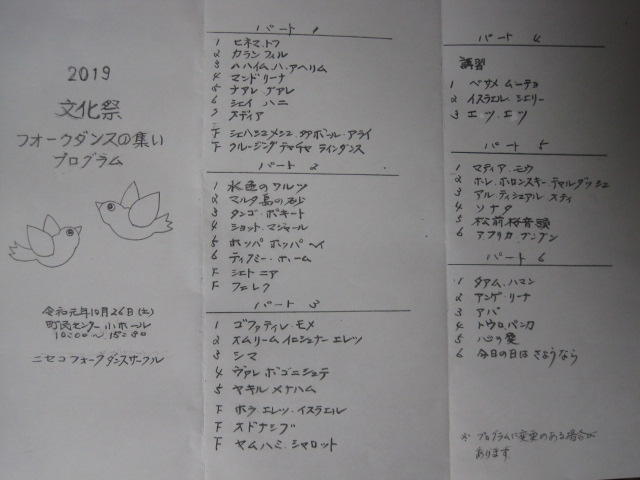 2019
文化祭
フォークダンスの集い
プログラム
令和元年10月26日(土)
町民センター 小ホール
10:00～15:30
ニセコフォークダンスサークル
パート 1
1 ヒネマ.トフ
2 カランフィル
3 ハハイム.ハ.アヘリム
4 マンドリーナ
5 ナアレ.グアレ
6 シェイ ハニ
7 スディア
F シェハシュメシュ.タアボール.アライ
F クルージングチャチャ ラインダンス
パート 2
1 水色のワルツ
2 マルタ島の砂
3 タンゴ.ポキート
4 ショット.マジャール
5 ホッパ ホッパ ヘイ
6 ティクミー.ホーム
F シェトニア
F フェレク
パート 3
1 ゴファティレ.モメ
2 ズムリーム イロシュナー エレツ
3 シマ
4 ヴァレ ポゴニシュテ
5 ヤキル メナハム
F ホラ.エレツ.イスラエル
F スドナシブ
F ヤムハミ.シャロット
パート 4
講習
1 ベサメ ムーチョ
2 イスラエル.シェリー
3 エツ.エツ
パート 5
1 マディア.モウ
2 ホーレ.ホロンスキー.チャルダッシュ
3 アル.ティシュアル スティ
4 ソナタ
5 松前桜音頭
6 アフリカ.ブンブン
パート 6
1 タアム.ハマン
2 アンゲリーナ
3 アパ
4 トウロ.パンカ
5 心の愛
6 今日の日はさようなら
※ プログラムに変更のある場合が
あります